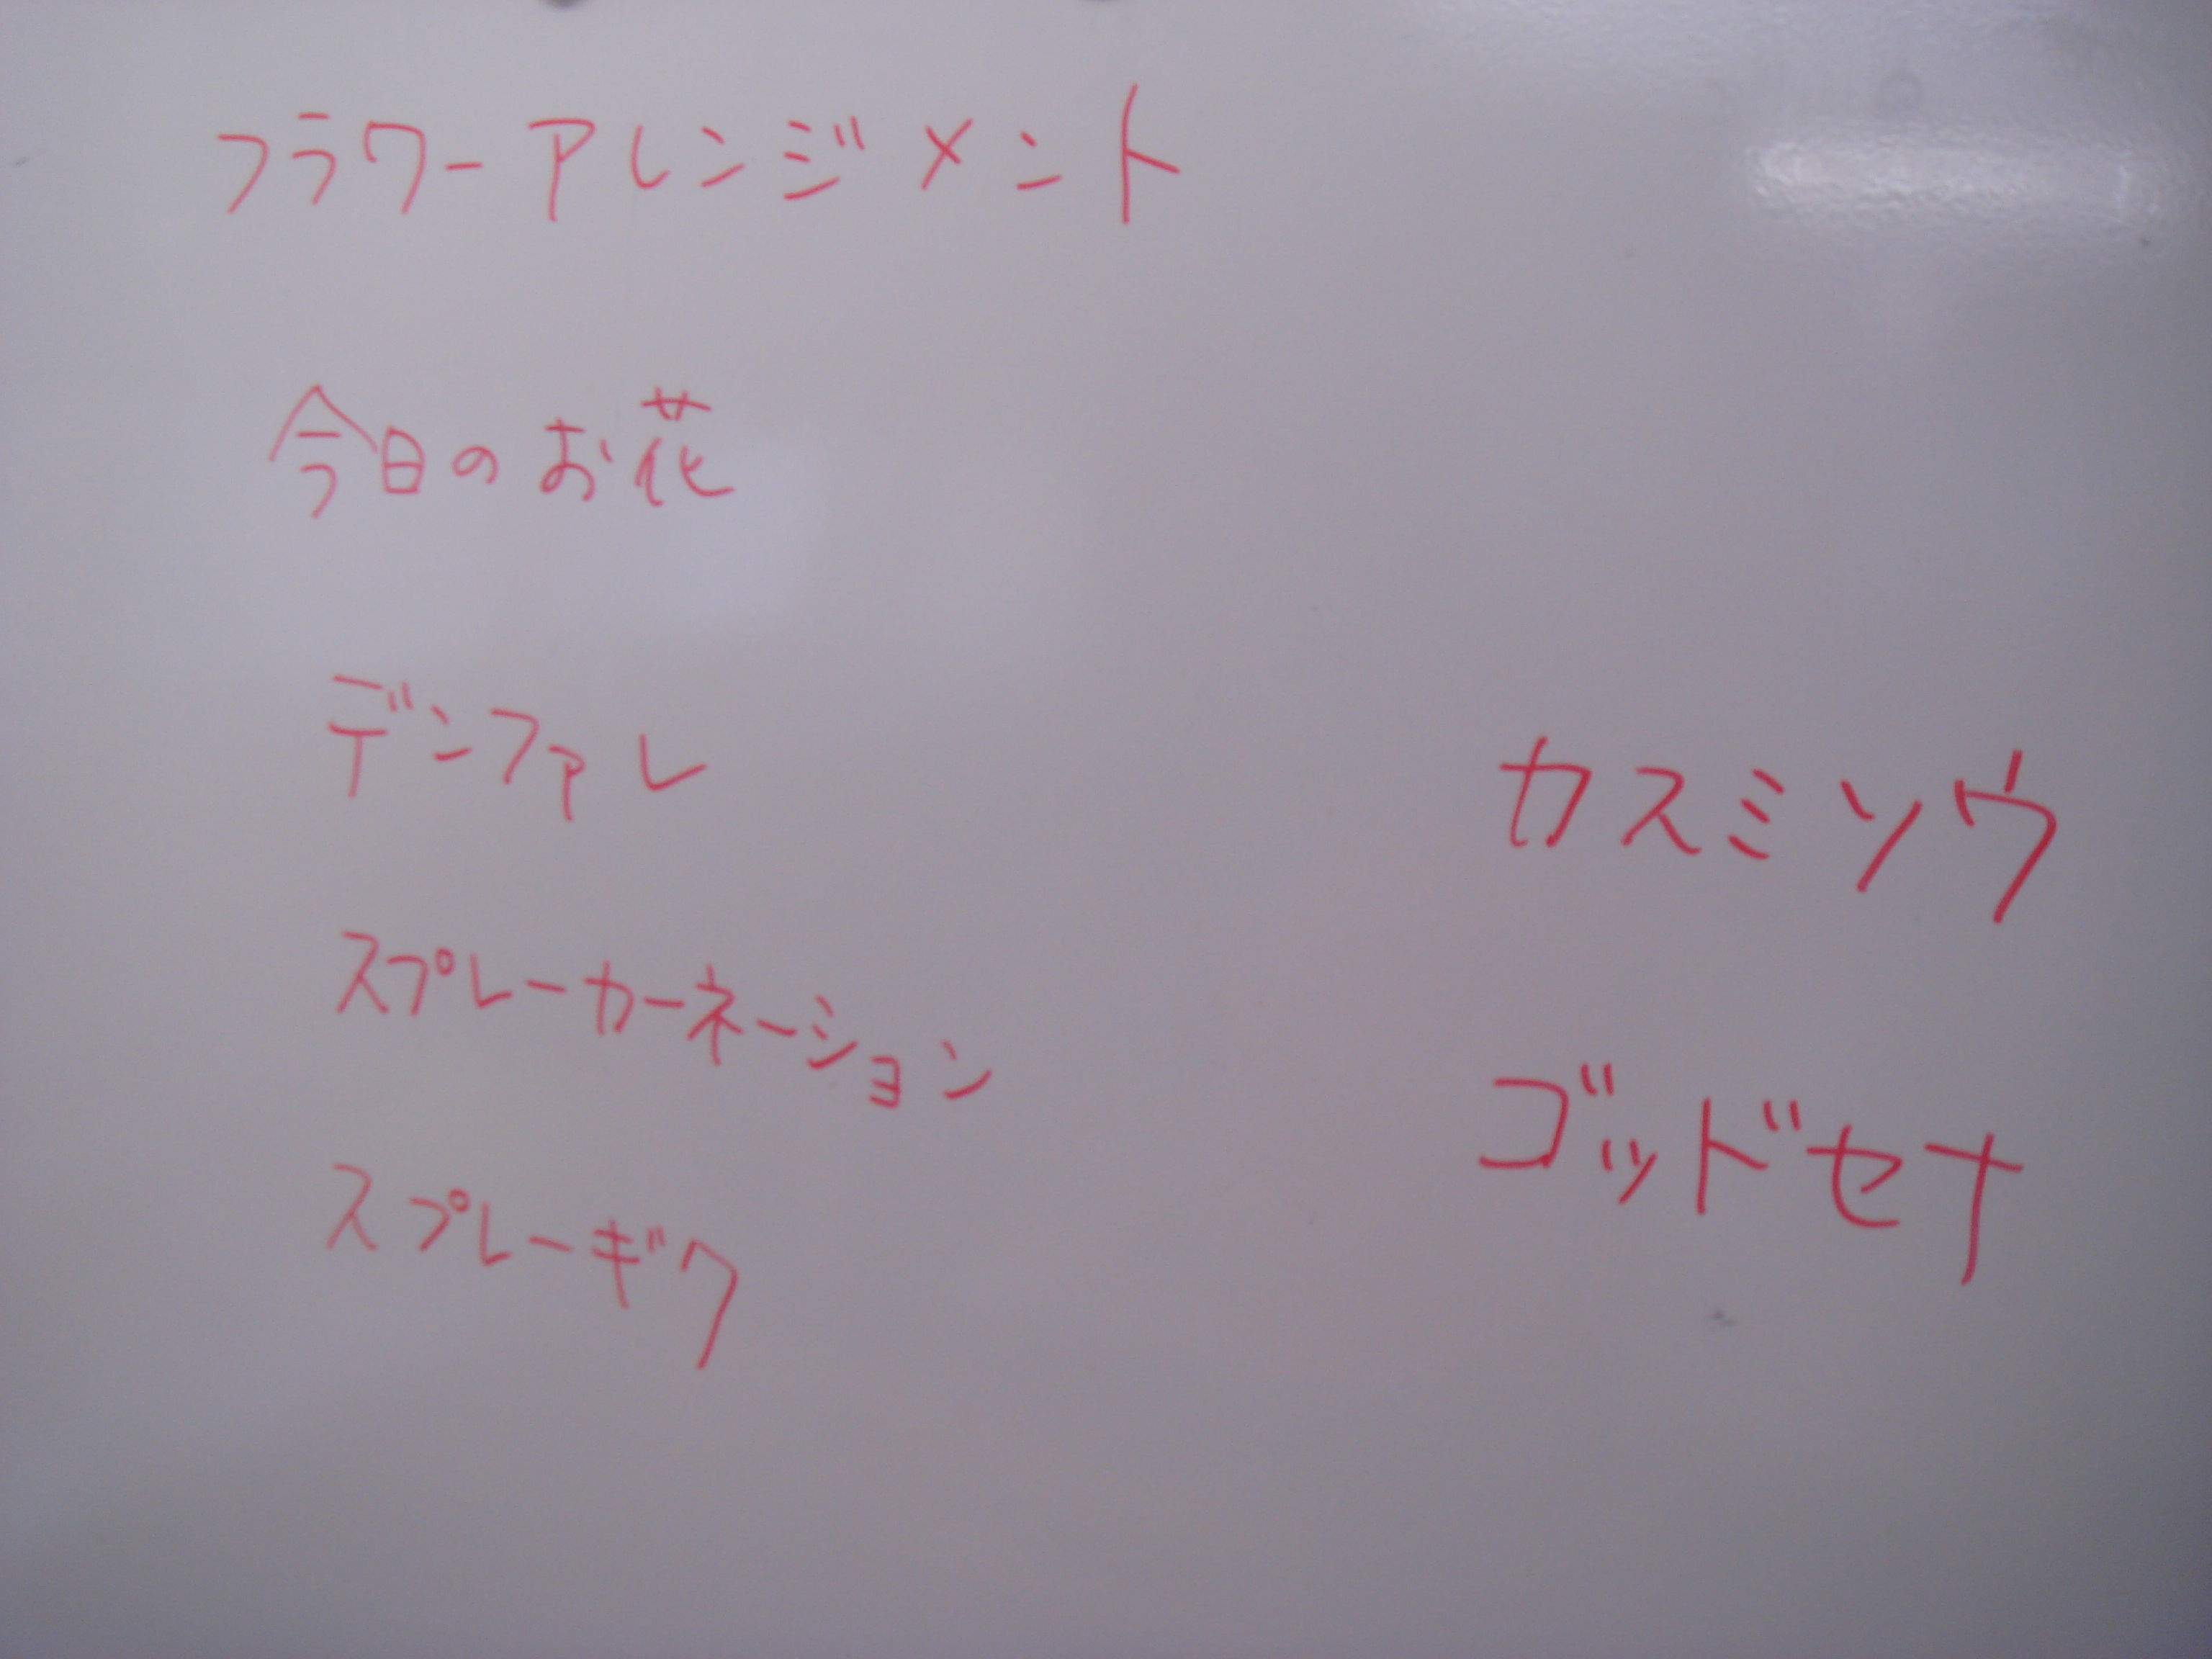 フラワーアレンジメント
今日のお花
デンファレ
スプレーカーネーション
スプレーギク
カスミソウ
ゴッドセナ